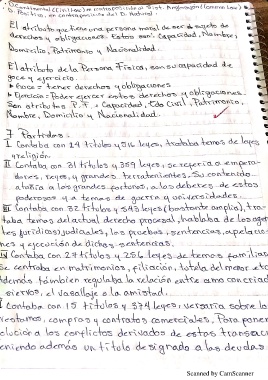 Occidental (Civil Law) en contraposición al Sist. Anglosajón (Common Law)
D. Positivo, en contraposición al D. Natural
El atributo que tiene una persona moral de ser sujeto de
derechos y obligaciones. Estos son: Capacidad, Nombre,
Domicilio, Patrimonio y Nacionalidad.
El atributo de la Persona Física, con su capacidad de
goce y ejercicio.
Goce = tener derechos y obligaciones
Ejercicio = Poder ejercer estos derechos y obligaciones.
Son atributos P.F. = Capacidad, Edo Civil, Patrimonio,
Nombre, Domicilio y Nacionalidad.
7 Partidas:
I Contaba con 24 títulos y 516 leyes, trataba temas de leyes
y religión.
II Contaba con 31 títulos y 359 leyes, se refería a empera-
dores, reyes, y grandes terratenientes. Su contenido
atañía a los grandes señores, a los deberes de estos
poderosos y a temas de guerra y universidades.
III Contaba con 32 títulos y 543 leyes (bastante amplia), tra-
taba temas del actual derecho procesal, hablaba de los agen
tes jurídicos, judiciales, las pruebas, sentencias, apelacio
nes y ejecución de dichas sentencias.
IV Contaba con 27 títulos y 256 leyes de temas familias
Se centraba en matrimonios, filiación, tutela del menor etc
además también regulaba la relación entre amo con criad
siervos, el vasallaje o la amistad.
V Contaba con 15 títulos y 374 leyes, versaría sobre lo
préstamos, compras y contratos comerciales. Para poner
solución a los conflictos derivados de estas transacc
teniendo además un título designado a las deudas
Scanned by CamScanner